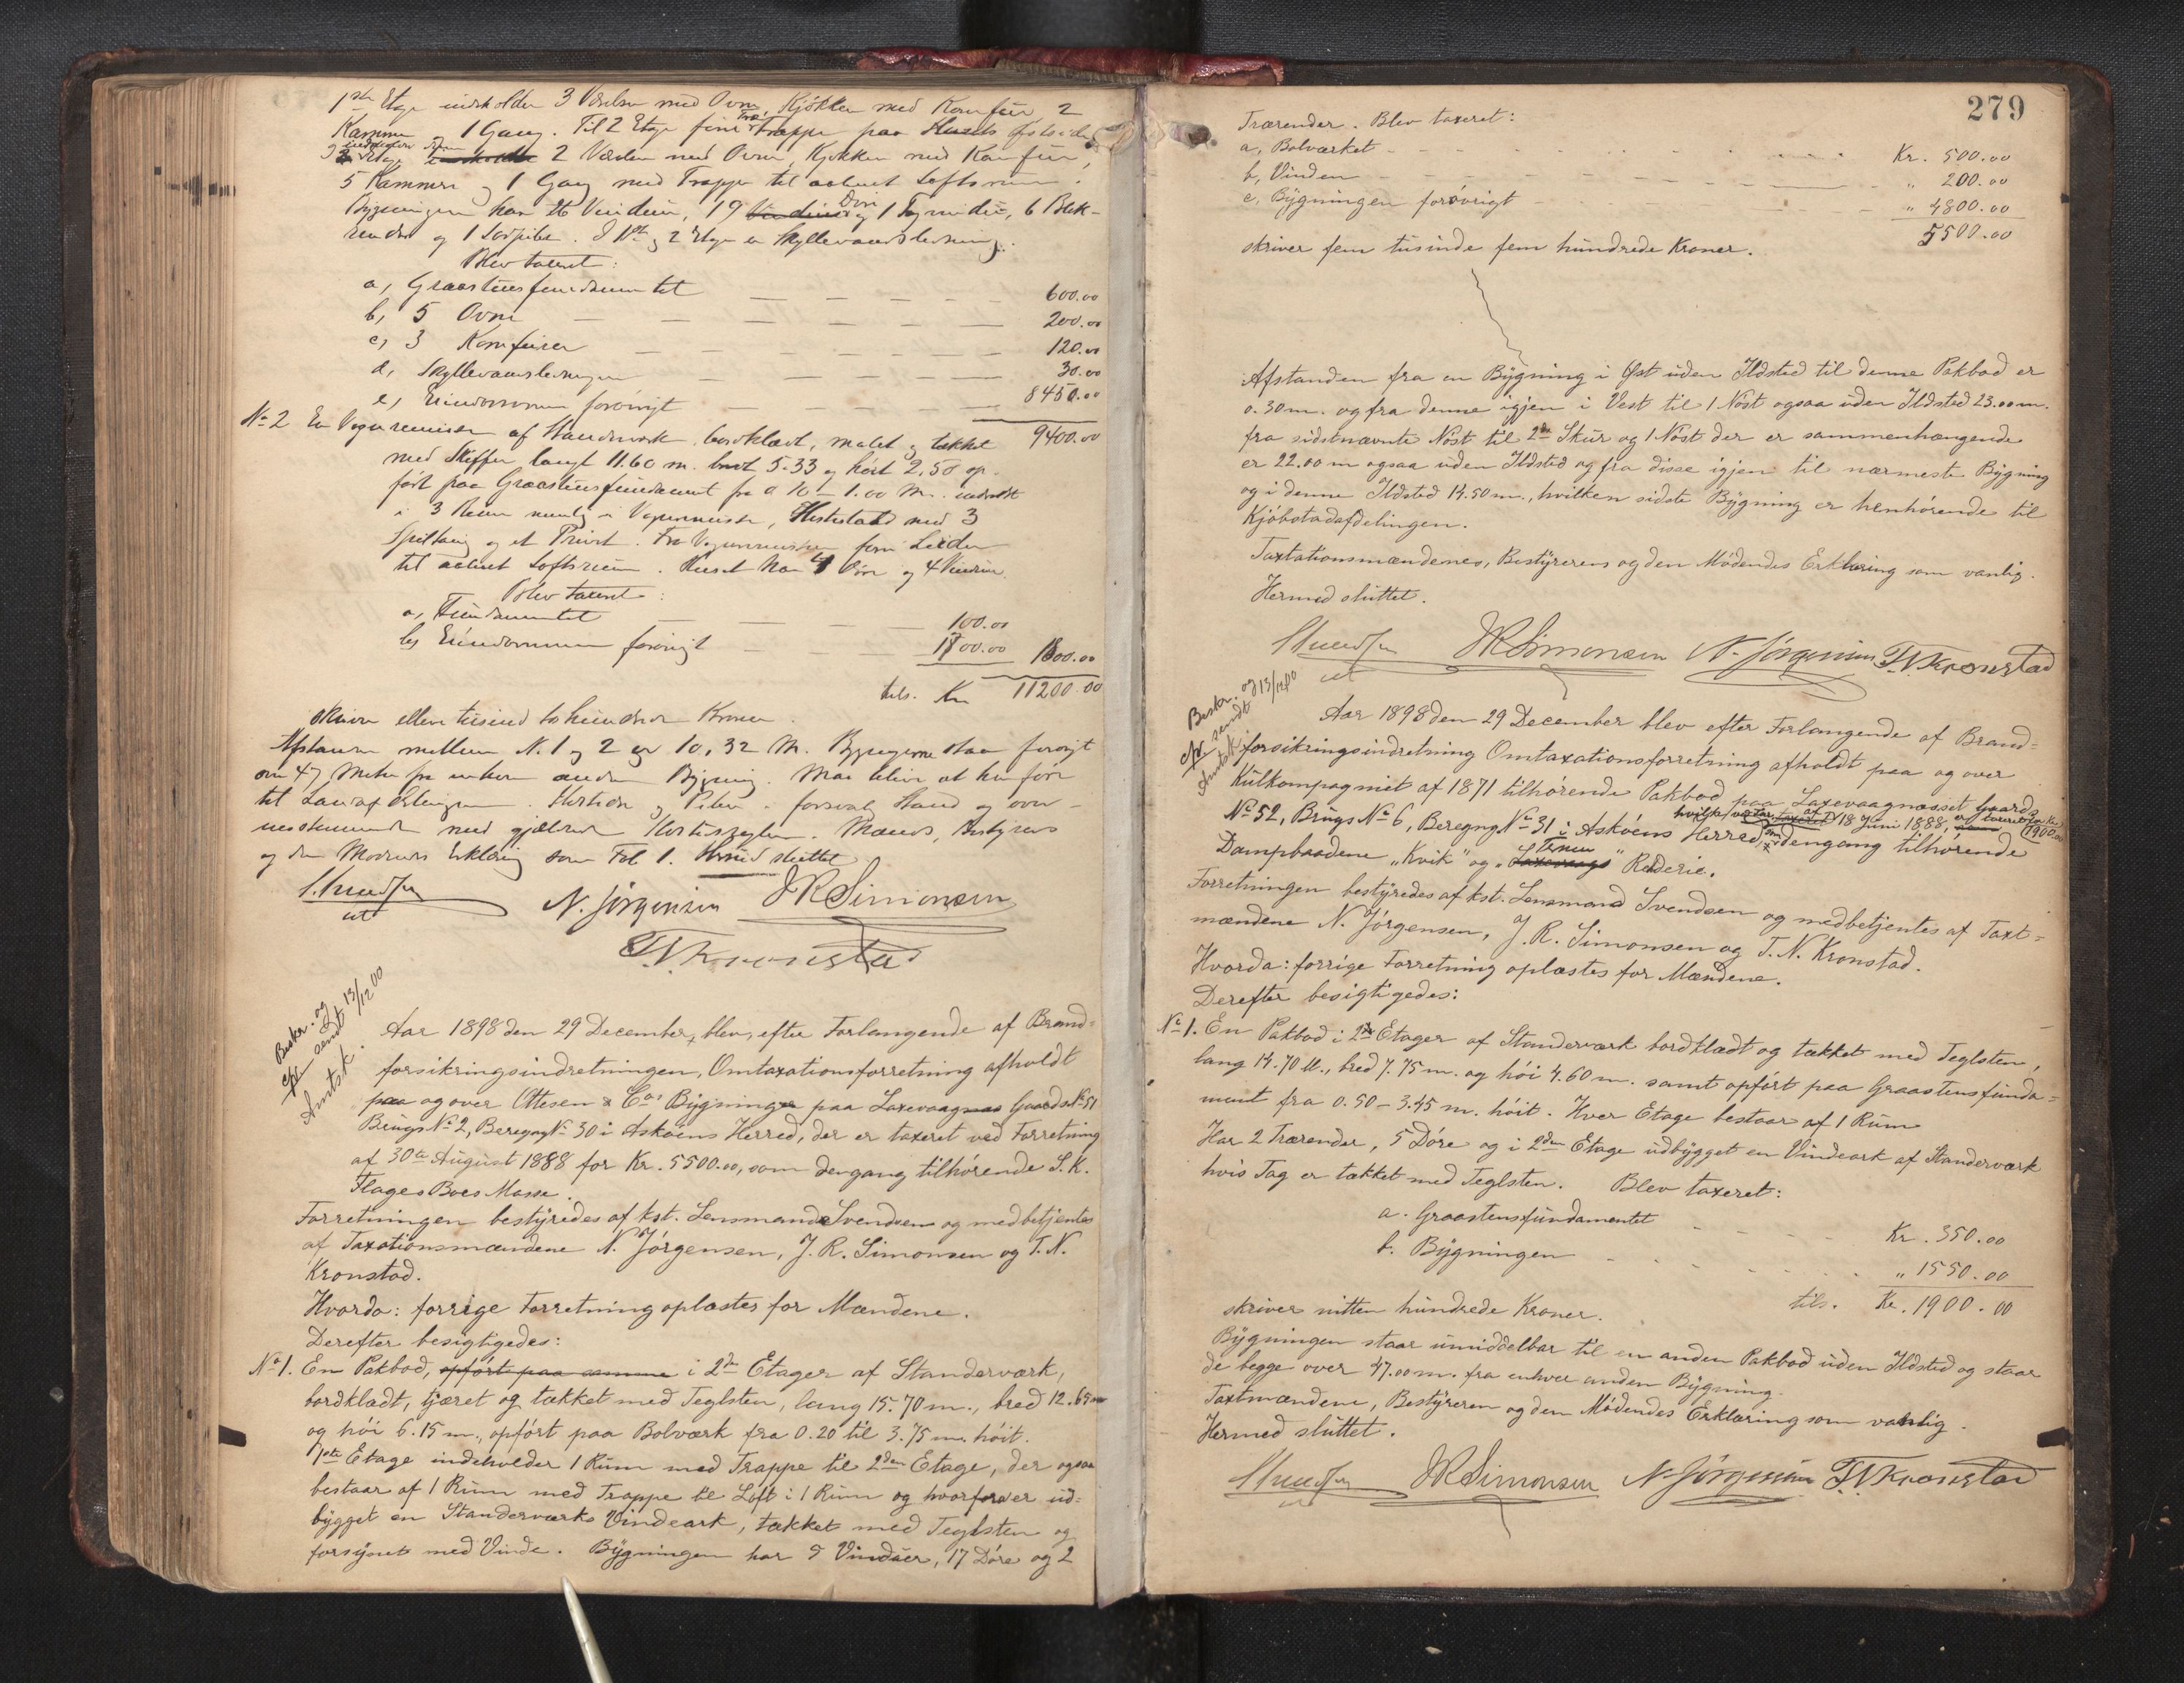 1ste Etage indeholder 3 Værelser med Ovne, Kjøkken med Komfür 2
Kammer og 1 Gang. Til 2 Etage fører Trappe paa Husets Østside
og 2 Etage 2 Værelser med Ovne, Kjøkken med Komfür,
5 Kammere og 1 Gang med Trappe til aabent Loftsrum.
Bygningen har 26 Vinduer, 19 Döre og 1 Tagvindue, 6 Blik-
render og 1 Sodpibe. I 1ste og 2 Etage er Skyllevandsledning.
Blev taxeret:
a, Graastensfundamentet 600.00
b, 5 Ovne 200.00
c, 3 Komfürer 120.00
d, Skyllevandsledningen 30.00
e, Eiendommen forövrigt 8450.00
9400.00
No 2 En Vognremise af Standerværk, bordklædt, malet og tækket
med Skiffer langt 11.60 m. bredt 5.33 og höit 2.50 op-
fört paa Graastensfundament fra 0 10 - 1.00 M. inddelt
i 3 Rum nemlig i Vognremise, Hestestald med 3
Spiltaug og et Privet. Fra Vognremisen förer Leider
til aabent Loftsrum. Huset har 4 Döre og 4 Vinduer.
Blev taxeret:
a, Fundamentet 100.00
b, Eiendommen forövrigt 1700.00 1800.00
tils. Kr 11200.00
skriver elleve tusind to hundrede Kroner.
Afstanden mellem N. 1 og 2 er 10,32 M. Bygningerne staar forövrigt
om 47 Meter fra enhver anden Bygning. Maa blive at henföre
til Landafdelingen. Skorstene og Piber i forsvarlig Stand og over-
ensstemmende med gjældende Skorstensregler. Mænds, Bestyrers
og den Mödendes Erklæring som Fol 1. Hermed sluttet
Svendsen
cst
N. Jörgensen JR Simonsen
T.N. Kronstad
Beskr. og
sendt 13/12 00
Amtsk.
Aar 1898 den 29 December, blev, efter Forlangende af Brand-
forsikringsindretningen, Omtaxationsforretning afholdt
paa og over Ottesen & Cos Bygninger paa Laxevaagnæs Gaards No 51
Brugs No 2, Beregng No 30 i Asköens Herred, der er taxeret ved Forretning
af 30te August 1888 for Kr. 5500.00, som dengang tilhörende S. K.
Flages Boes Masse.
Forretningen bestyredes af kst. Lensmand Svendsen og medbetjentes
af Taxationsmændene N. Jörgensen, J. R. Simonsen og T. N.
Kronstad.
Hvorda: forrige Forretning oplæstes for Mændene.
Derefter besigtigedes:
No 1. En Pakbod, opfört paa samme i 2de Etager af Standerværk,
bordklædt, tjæret og tækket med Teglsten, lang 15.70 m., bred 12.65 m
og höi 6.15 m., opfört paa Bolværk fra 0.20 til 3.75 m. höit.
1ste Etage indeholder 1 Rum med Trappe til 2den Etage, der ogsaa
bestaar af 1 Rum med Trappe til Loft i 1 Rum og hvorfra er ud-
bygget en Standerværks Vindeark, tækket med Teglsten og
forsynet med Vinde. Bygningen har 5 Vinduer, 17 Döre og 2
279
Trærender. Blev taxeret:
a, Bolværket Kr. 500.00
b, Vinden " 200.00
c, Bygningen forövrigt " 4800.00
5500.00
skriver fem tusinde fem hundrede Kroner.
Afstanden fra en Bygning i Öst uden Ildsted til denne Pakbod er
0.30 m. og fra denne igjen i Vest til 1 Nöst ogsaa uden Ildsted 23.00 m.
fra sidstnævnte Nöst til 2de Skur og 1 Nöst der er sammenhængende
er 22.00 m ogsaa uden Ildsted og fra disse igjen til nærmeste Bygning
og i denne Ildsted 14.50 m., hvilken sidste Bygning er henhörende til
Kjöbstadafdelingen.
Taxtationsmændenes, Bestyrerens og den Mödendes Erklæring som vanlig.
Hermed sluttet.
Svendsen JR Simonsen N. Jörgensen T.N. Kronstad
cst
Beskr. og 13/12 00
sendt
Amtsk.
Aar 1898 den 29 December blev efter Forlangende af Brand-
forsikringsindretning Omtaxationsforretning afholdt paa og over
Kulkompagniet af 1871 tilhörende Pakbod paa Laxevaagnæsset Gaards
hvilke 18 Juni 1888, er taxeret for Kr. 1900.00
No 52, Brugs No 6, Beregng No 31 i Asköens Herred, som dengang tilhörende
Dampbaadene "Kvik" og "Laxevaags" Rederie.
Forretningen bestyredes af kst. Lensmand Svendsen og medbetjentes af Taxt-
mændene N. Jörgensen, J. R. Simonsen og T. N. Kronstad.
Hvorda: forrige Forretning oplæstes for Mændene.
Derefter besigtigedes:
No 1. En Pakbod i 2de Etager af Standerværk bordklædt og tækket med Teglsten,
lang 14.70 M., bred 7.75 m. og höi 4.60 m. samt opfört paa Graastensfunda-
ment fra 0.50 - 3.45 m. höit. Hver Etage bestaar af 1 Rum
Har 2 Trærender, 5 Döre og i 2den Etage udbygget en Vindeark af Standerværk
hvis Tag er tækket med Teglsten. Blev taxeret:
a. Graastensfundamentet Kr. 350.00
b. Bygningen " 1550.00
tils. Kr. 1900.00
skriver nitten hundrede Kroner.
Bygningen staar umiddelbar til en anden Pakbod uden Ildsted og staar
de begge over 47.00 m. fra enhver anden Bygning.
Taxtmændene, Bestyreren og den Mödendes Erklæring som vanlig.
Hermed sluttet.
Svendsen JR Simonsen N. Jörgensen T.N. Kronstad